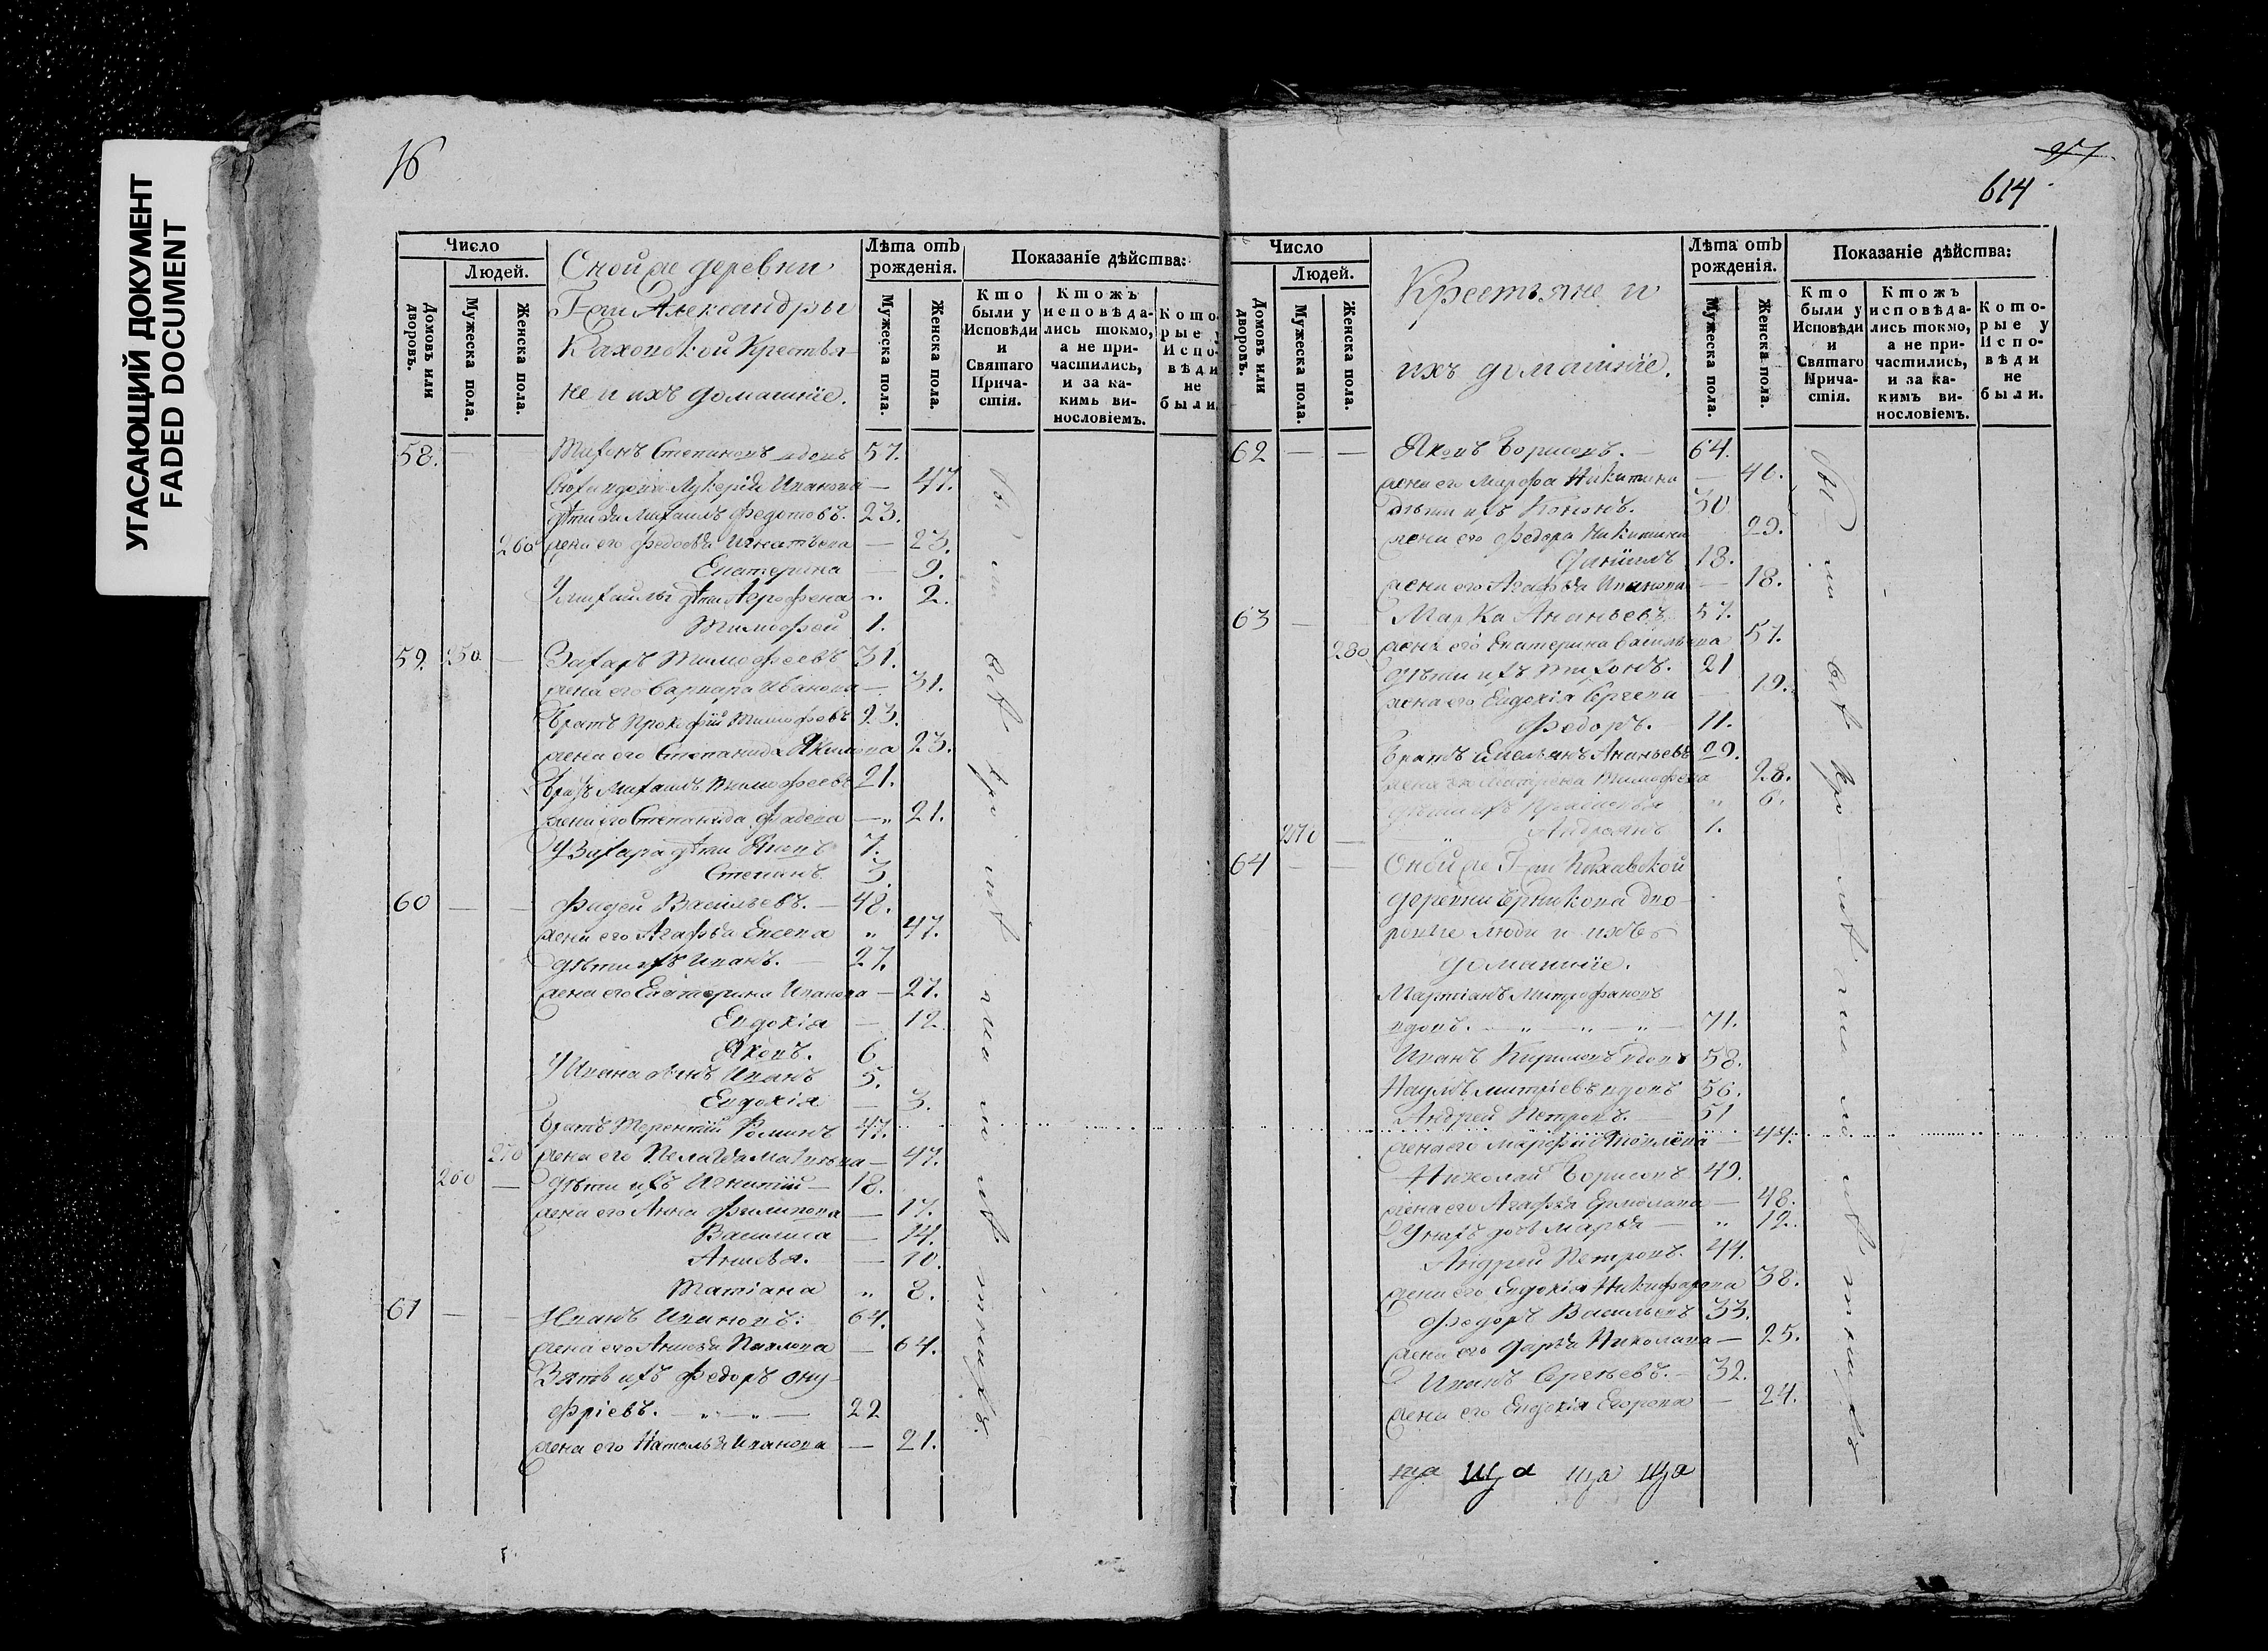 УГАСАЮЩИЙ ДОКУМЕНТ
FADED DOCUMENT
16
Число
Людей.
Домовъ или дворовъ.
Мужеска пола.
Женска пола.
Оной же деревни
Г-жи Александры
Каховской Крестья-
не и ихъ домашніе.
Лѣта отъ рожденія.
Мужеска пола.
Женска пола.
Показаніе дѣйства:
Кто были у Исповѣди и Святаго Причастія.
Ктожъ исповѣдались токмо, а не причастились, и за какимъ винословіемъ.
Которые у Исповѣди не были.
58. — — Тихонъ Степановъ вдовъ 57.
Лукерія Иванова — 47.
дѣти Михаилъ Федотовъ. 23.
260 жена его Федосья Игнатьева — 23.
Екатерина — 9.
У Михаилы дѣти Агрофена „ 2.
Тимофей 1.
59. 250 — Захаръ Тимофеевъ 31.
жена его Варвара Иванова — 31.
Братъ Прокофій Тимофевъ 23.
жена его Степанида Якимова 23.
Братъ Михаилъ Тимофеевъ 21.
жена его Степанида Фадева —„ 21.
У Захара дѣти 7.
Степанъ 3.
60 — — Фадей Васильевъ. — 48.
жена его Агафья Евсева „ 47.
дѣти ихъ Иванъ. — 27.
жена его Екатерина Иванова — 27.
Евдокія — 12
Яковъ. 6
У Ивана сынъ Иванъ 5.
Евдокія — 3.
Братъ Терентій 47.
270 жена его Пелагея — 47.
260 — дѣти ихъ Игнатій — 18.
жена его Анна Филипова — 17.
Василиса — 14.
Анисья. — 10.
Татіана „ 8.
61 — — Иванъ Ивановъ. 64.
жена его Анисья Павлова — 64.
Зять ихъ Федоръ Ону-
фріевъ. — „ — „ — 22
жена его Наталья Иванова — 21.
614
Число
Людей.
Домовъ или дворовъ.
Мужеска пола.
Женска пола.
Крестьяне и
ихъ домашніе.
Лѣта отъ рожденія.
Мужеска пола.
Женска пола.
Показаніе дѣйства:
Кто были у Исповѣди и Святаго Причастія.
Ктожъ исповѣдались токмо, а не причастились, и за какимъ винословіемъ.
Которые у Исповѣди не были.
62 — — Яковъ Борисовъ. — 64.
жена его Марфа Никитина — 46.
дѣти ихъ Кононъ. 30
жена его Федора Никитина 29.
Даніилъ 18.
жена его Агафья Иванова — 18.
63 — Марка Ананьевъ 57.
280 жена его Екатерина Васильева 57.
дѣти ихъ Тихонъ. 21
жена его Евдокія Сергева — 19.
Федоръ. — 11.
Братъ Емельянъ Ананьевъ 29.
жена его Тимофева 28.
дѣти ихъ „ 6.
270 — Андрѣянъ 1.
64 — — Оной же Г-жи Каховской
деревни дво-
ровые люди и ихъ
домашніе.
Мартіанъ Митрофановъ
вдовъ. — „ — „ — „ — 71.
Иванъ Кириловъ вдовъ 58.
Наумъ Митріевъ вдовъ 56.
Андрей Петровъ. — 51
жена его Марфа — 44.
Николай Борисовъ 49.
жена его Агафья Ермолава — 48.
У нихъ дочь Марья — „ 12.
Андрей Петровъ. 44.
жена его Евдокія Никифарова 38.
Федоръ Васильевъ 33.
жена его Дарья Николава — 25.
Иванъ Сергѣевъ. — 32.
жена его Евдокія Егорова — 24.
ща ща ща ща